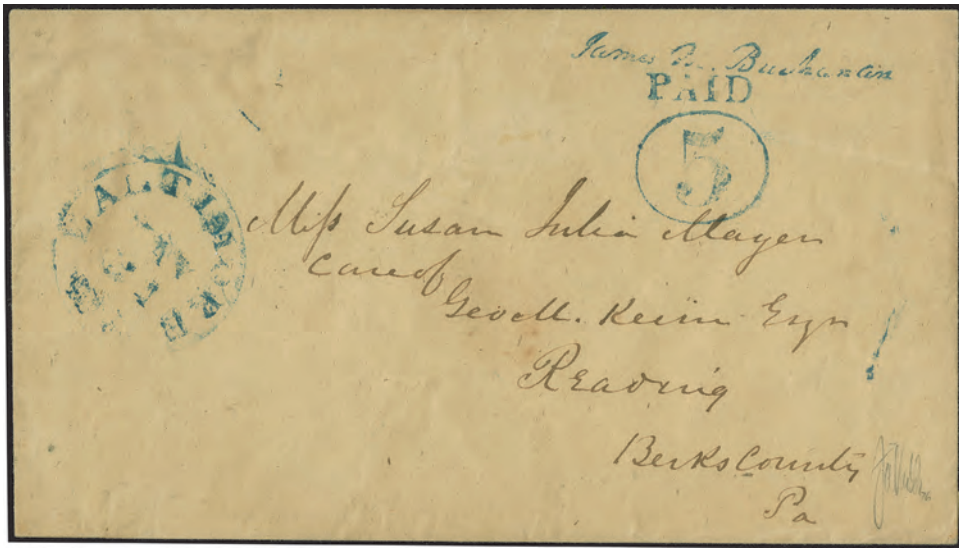 James M. Buchanan
PAID
5
BALTIMORE
Miss Susan Julia Mayer
Care of
Geo M. Keim Esqr
Reading
Berks County
Pa